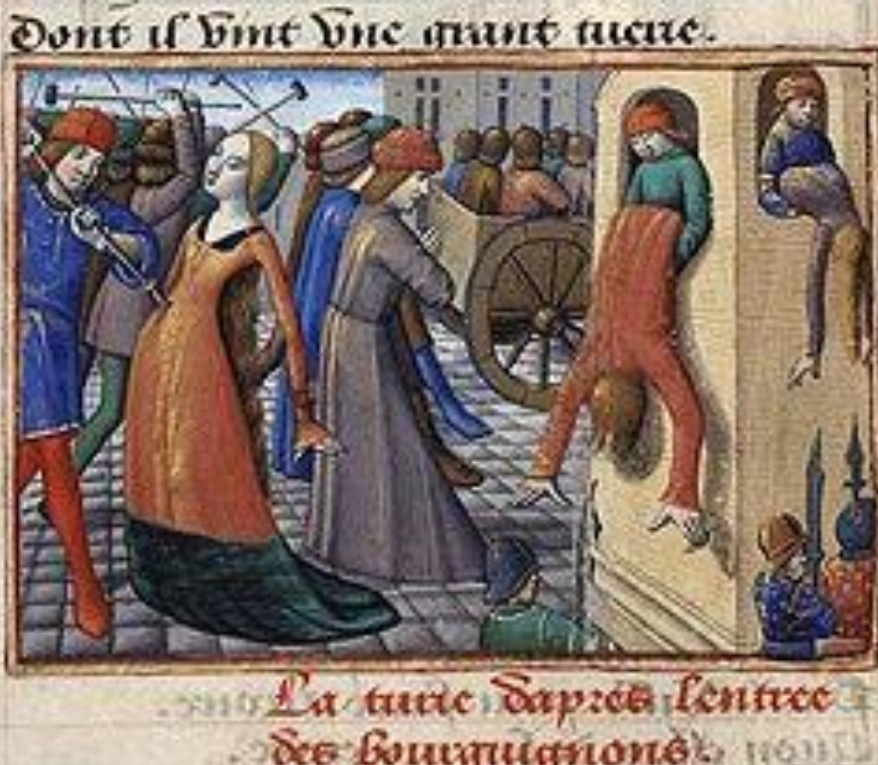 Dont il vint vne grant tuerie.
La turie dapres lentree
des bourguignons.